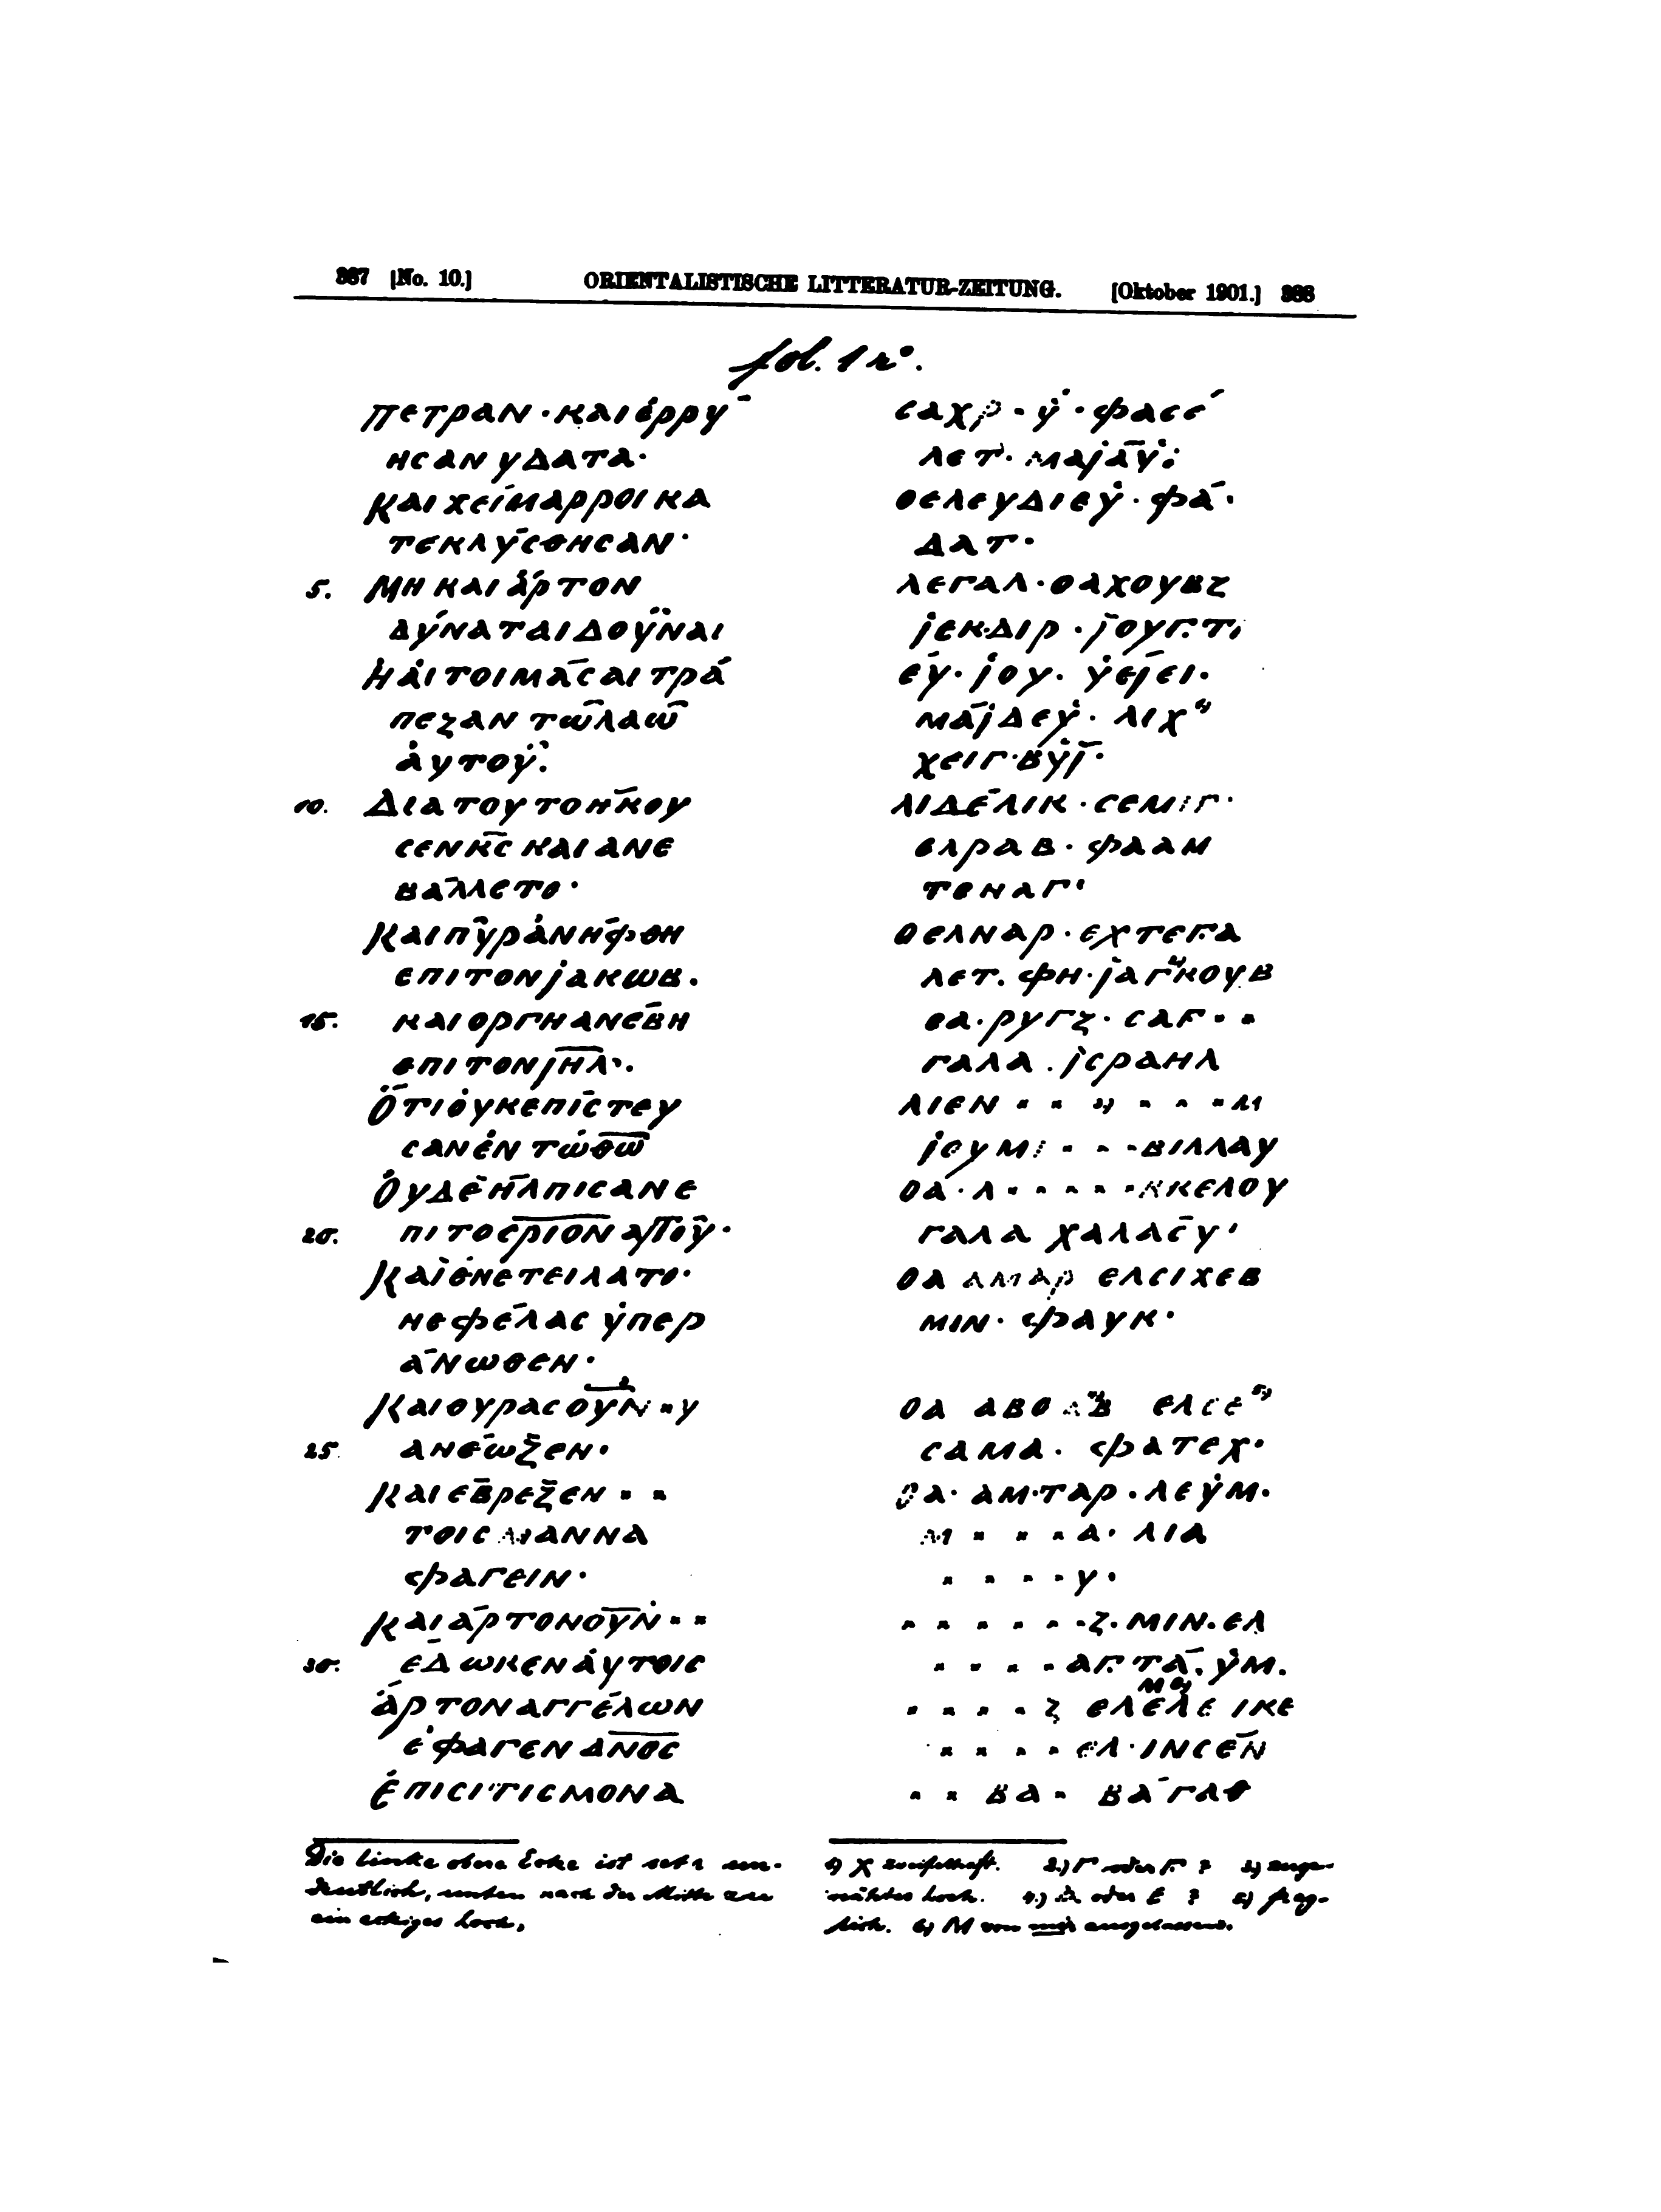 387 [No. 10.] ORIENTALISTISCHE LITTERATUR-ZEITUNG. [Oktober 1901.] 388
fol. 1 rº.
πετραν · και έρρύ
ησαν υδατα·
και χείμαρροι κα
τεκλύσθησαν·
5. Μη και άρτον
δύναται δοϋναι
ή άιτοιμάσαι τρά
πεζαν τῶ λαῶ
ἀυτοῦ.
10. Δια τουτο ήκου
σεν κ̅ς̅ και ανε
βάλλετο·
Και πῦρ ἀνήφθη
επι τον jακωβ.
15. και οργη ανέβη
επι τον j̅η̅λ̅·.
Ὅτι ὀυκ επίστευ
σαν ἐν τῶ θ̅ω̅
Ὀυδὲ ήλπισαν ε
20. πι το σ̅ρ̅ι̅ο̅ν̅ αυτοῦ·
Καὶ ἐνετειλατο·
νεφέλας ὑπερ
άνωθεν·
Και θυρας ου̅ν̅ · υ
25. ανέωξεν·
Και έβρεξεν · ·
τοις μαννα
φαγειν·
Και άρτον ου̅ν̅ · ·
30. έδωκεν ἀυτοις
άρτον αγγέλων
ἐφαγεν α̅ν̅ο̅ς̅
ἐπισιτισμον α
σαχρ · ὐ · φασέ
λετ · μαjάὐ:
θελευδιεὐ · φά·
δατ ·
λεγαλ · θαχουβζ
jεκ·διρ · jουγ·τι
εύ· jου· ὐεjει·
μάjδεὐ · λιχ ¹⁾
χειγ·βὐj·
λιδέλικ · σεμιγ·
ελραβ · φααμ
τεναγ·
θελναρ · εχτεγ·α
λετ. φη·jαγ²⁾κουβ
θα·ρυγζ· σαγ· · ·
γαλα . jσραηλ
λιεν · · ³⁾ · · · λι
jουμι · · · βιλλαυ
θά·λ · · · · · κκελου
γαλα χαλάσυ·
θα αμαρ ελσιχεβ
μιν· φαυκ·
θα αβθ α⁴⁾β ελσε ⁵⁾
σαμα· φατεχ·
θα· αμ·ταρ · λεὐμ·
μ · · · α· λια
· · · · υ·
· · · · · · ζ·μιν·ελ
· · · · αγ·τά·ὐμ.
μ ⁶⁾
· · · · ζ ελελε ικε
· · · · ελ·ινσέν
· · βα · βάγαθ
Die linke obere Ecke ist sehr un-
deutlich, unten nach der Mitte zu
ein eckiges Loch,
1) χ zweifelhaft. 2.) Γ oder Γ· ? 3.) ange-
nähtes Loch. 4.) α oder ε ? 5) frag-
lich. 6) M von mir ausgelassen.